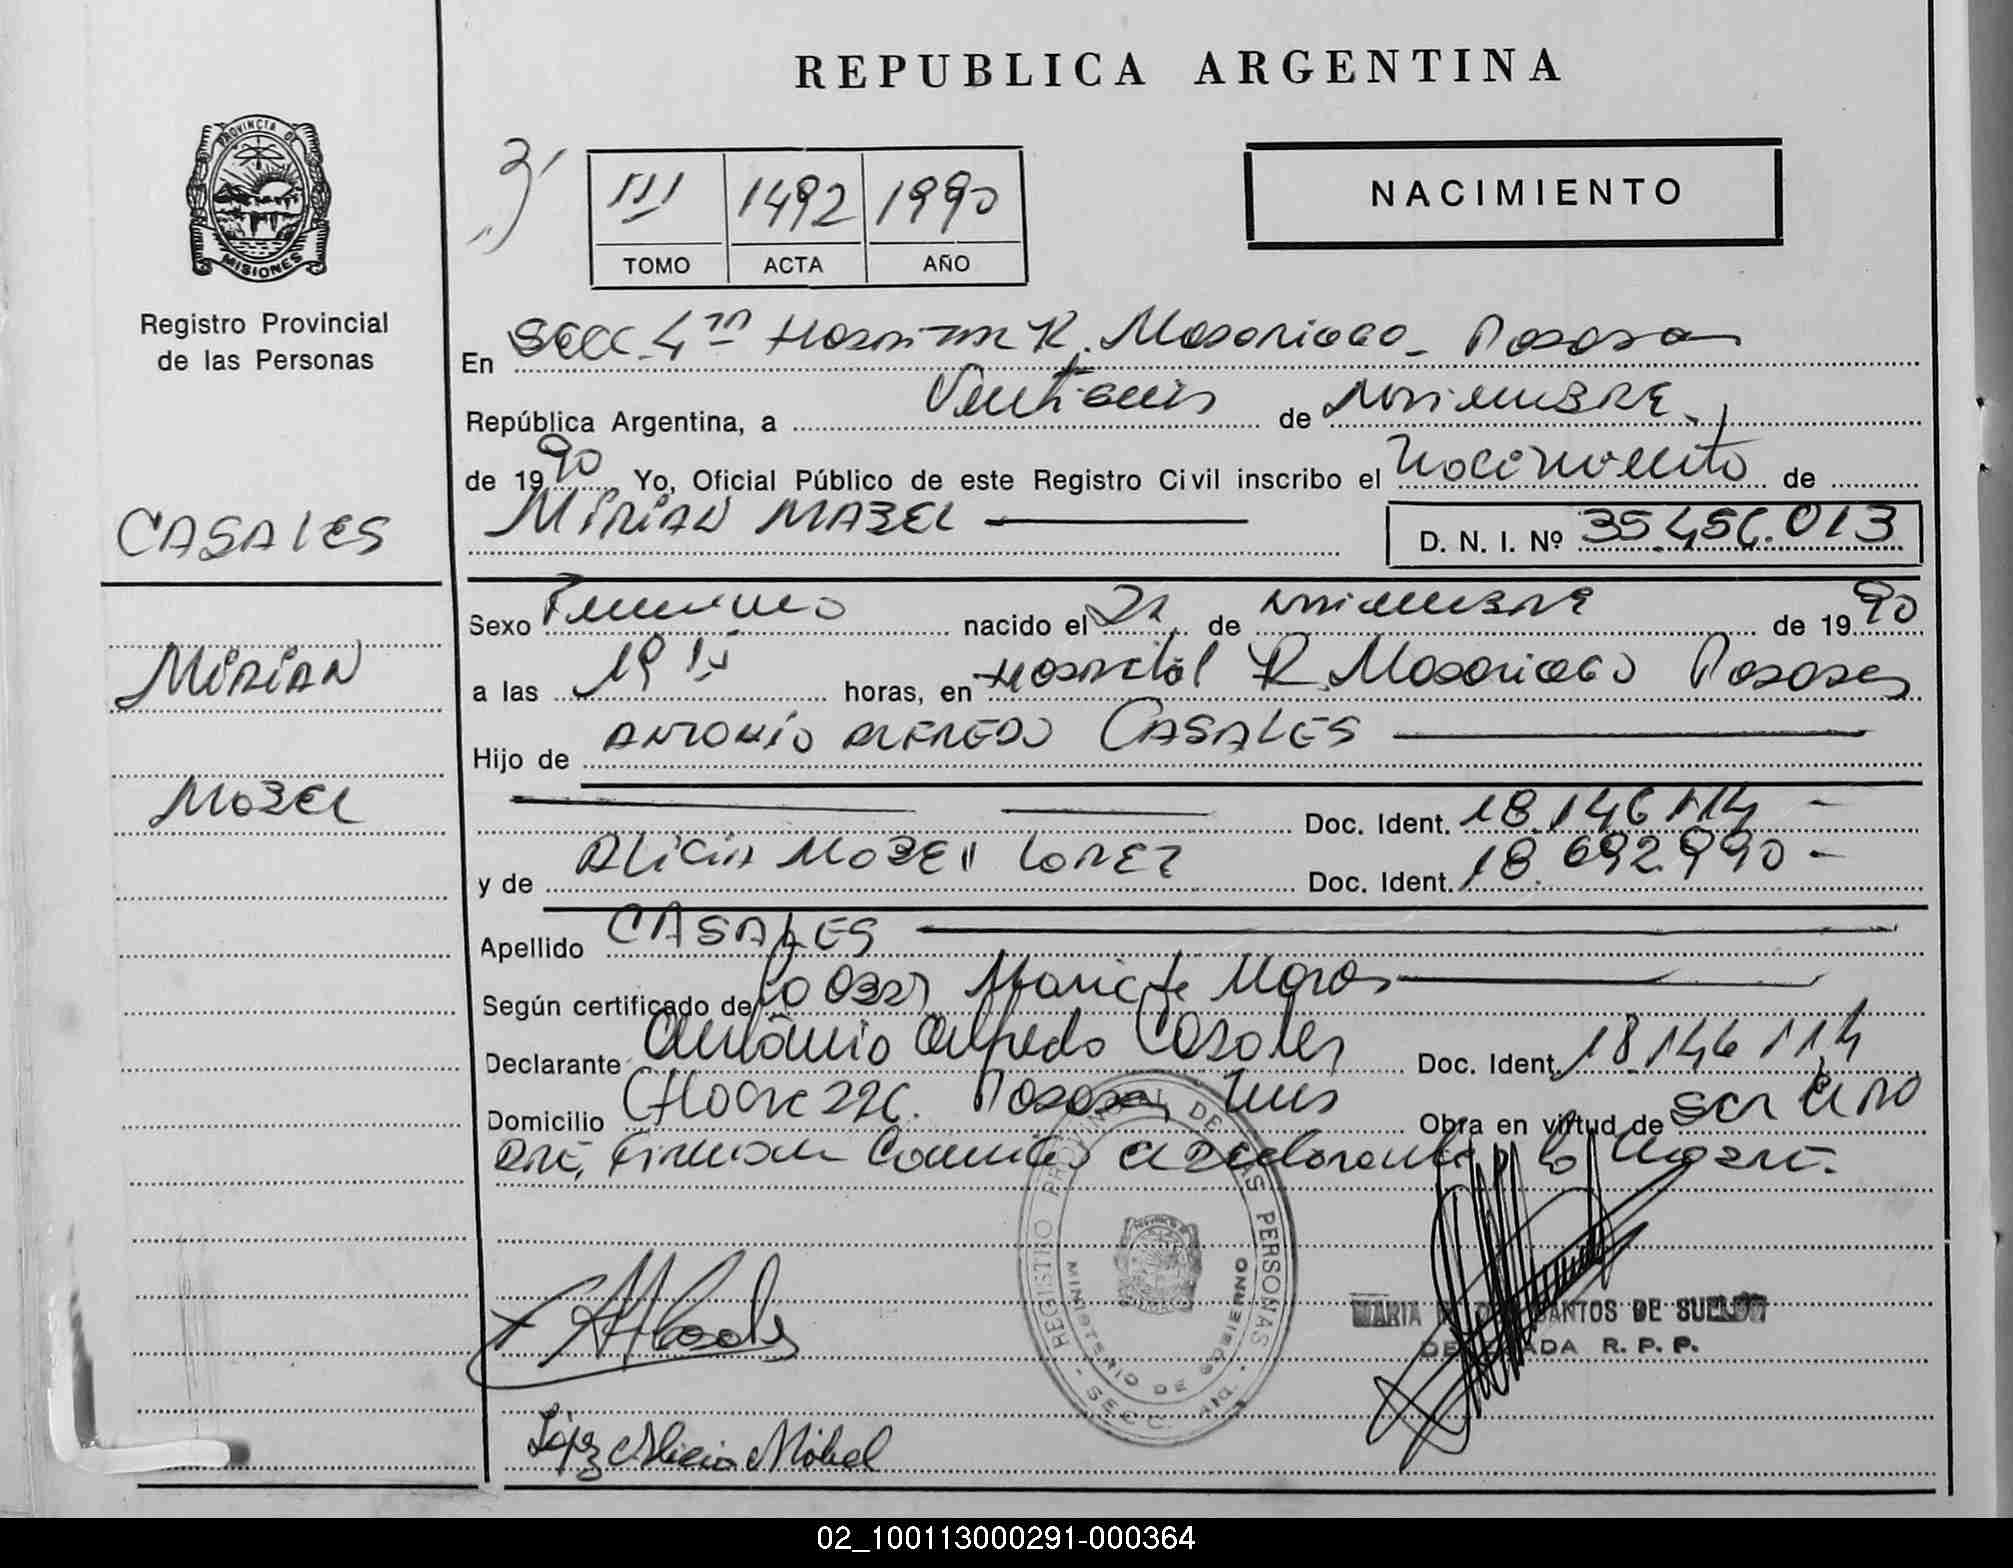 REPUBLICA ARGENTINA
PROVINCIA DE
MISIONES
Registro Provincial
de las Personas
III 1492 1990
TOMO ACTA AÑO
NACIMIENTO
En Secc 4ta Hospital R. Madariaga - Posadas
República Argentina, a de Noviembre
de 1990 Yo, Oficial Público de este Registro Civil inscribo el nacimiento de
MIRIAN MABEL
D. N. I. Nº 35.456.013
CASALES
MIRIAN
MABEL
Sexo Femenino nacido el 21 de noviembre de 1990
a las 19 horas, en Hospital R. Madariaga Posadas
Hijo de ANTONIO ALFREDO CASALES
Doc. Ident. 18.146.114 -
y de ALICIA MABEL LOPEZ Doc. Ident. 18.692.990 -
Apellido CASALES
Según certificado de la Obst
Declarante Antonio Alfredo Casales Doc. Ident. 18.146.114
Domicilio Posadas Mnes Obra en virtud de ser el pa
dre, firman Conmigo el declarante y la madre.
REGISTRO PROVINCIAL DE LAS PERSONAS
MINISTERIO DE GOBIERNO
SECC.
MARIA SANTOS DE
DELEGADA R. P. P.
López Alicia Mabel
02_100113000291-000364